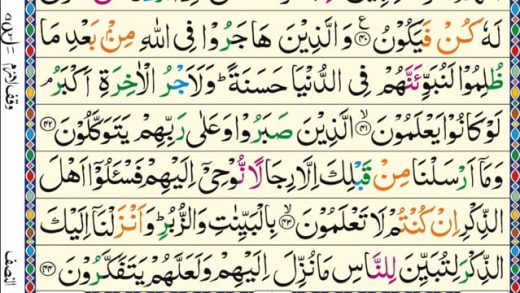 لَهٗ كُنْ فَيَكُوْنُ ﴿۴۰﴾ ع وَالَّذِيْنَ هَاجَرُوْا فِى اللّٰهِ مِنْۢ بَعْدِ مَا
ظُلِمُوْا لَنُبَوِّئَنَّهُمْ فِى الدُّنْيَا حَسَنَةً ؕ وَلَاَجْرُ الْاٰخِرَةِ اَكْبَرُ ۘ
لَوْ كَانُوْا يَعْلَمُوْنَ ﴿۴۱﴾ ۙ الَّذِيْنَ صَبَرُوْا وَعَلٰى رَبِّهِمْ يَتَوَكَّلُوْنَ ﴿۴۲﴾
وَمَاۤ اَرْسَلْنَا مِنْ قَبْلِكَ اِلَّا رِجَالًا نُّوْحِىْۤ اِلَيْهِمْ فَسْـَٔلُوْۤا اَهْلَ
الذِّكْرِ اِنْ كُنْتُمْ لَا تَعْلَمُوْنَ ﴿۴۳﴾ ۙ بِالْبَيِّنٰتِ وَالزُّبُرِ ؕ وَاَنْزَلْنَاۤ اِلَيْكَ
الذِّكْرَ لِتُبَيِّنَ لِلنَّاسِ مَا نُزِّلَ اِلَيْهِمْ وَلَعَلَّهُمْ يَتَفَكَّرُوْنَ ﴿۴۴﴾
وقف لازم
النصف